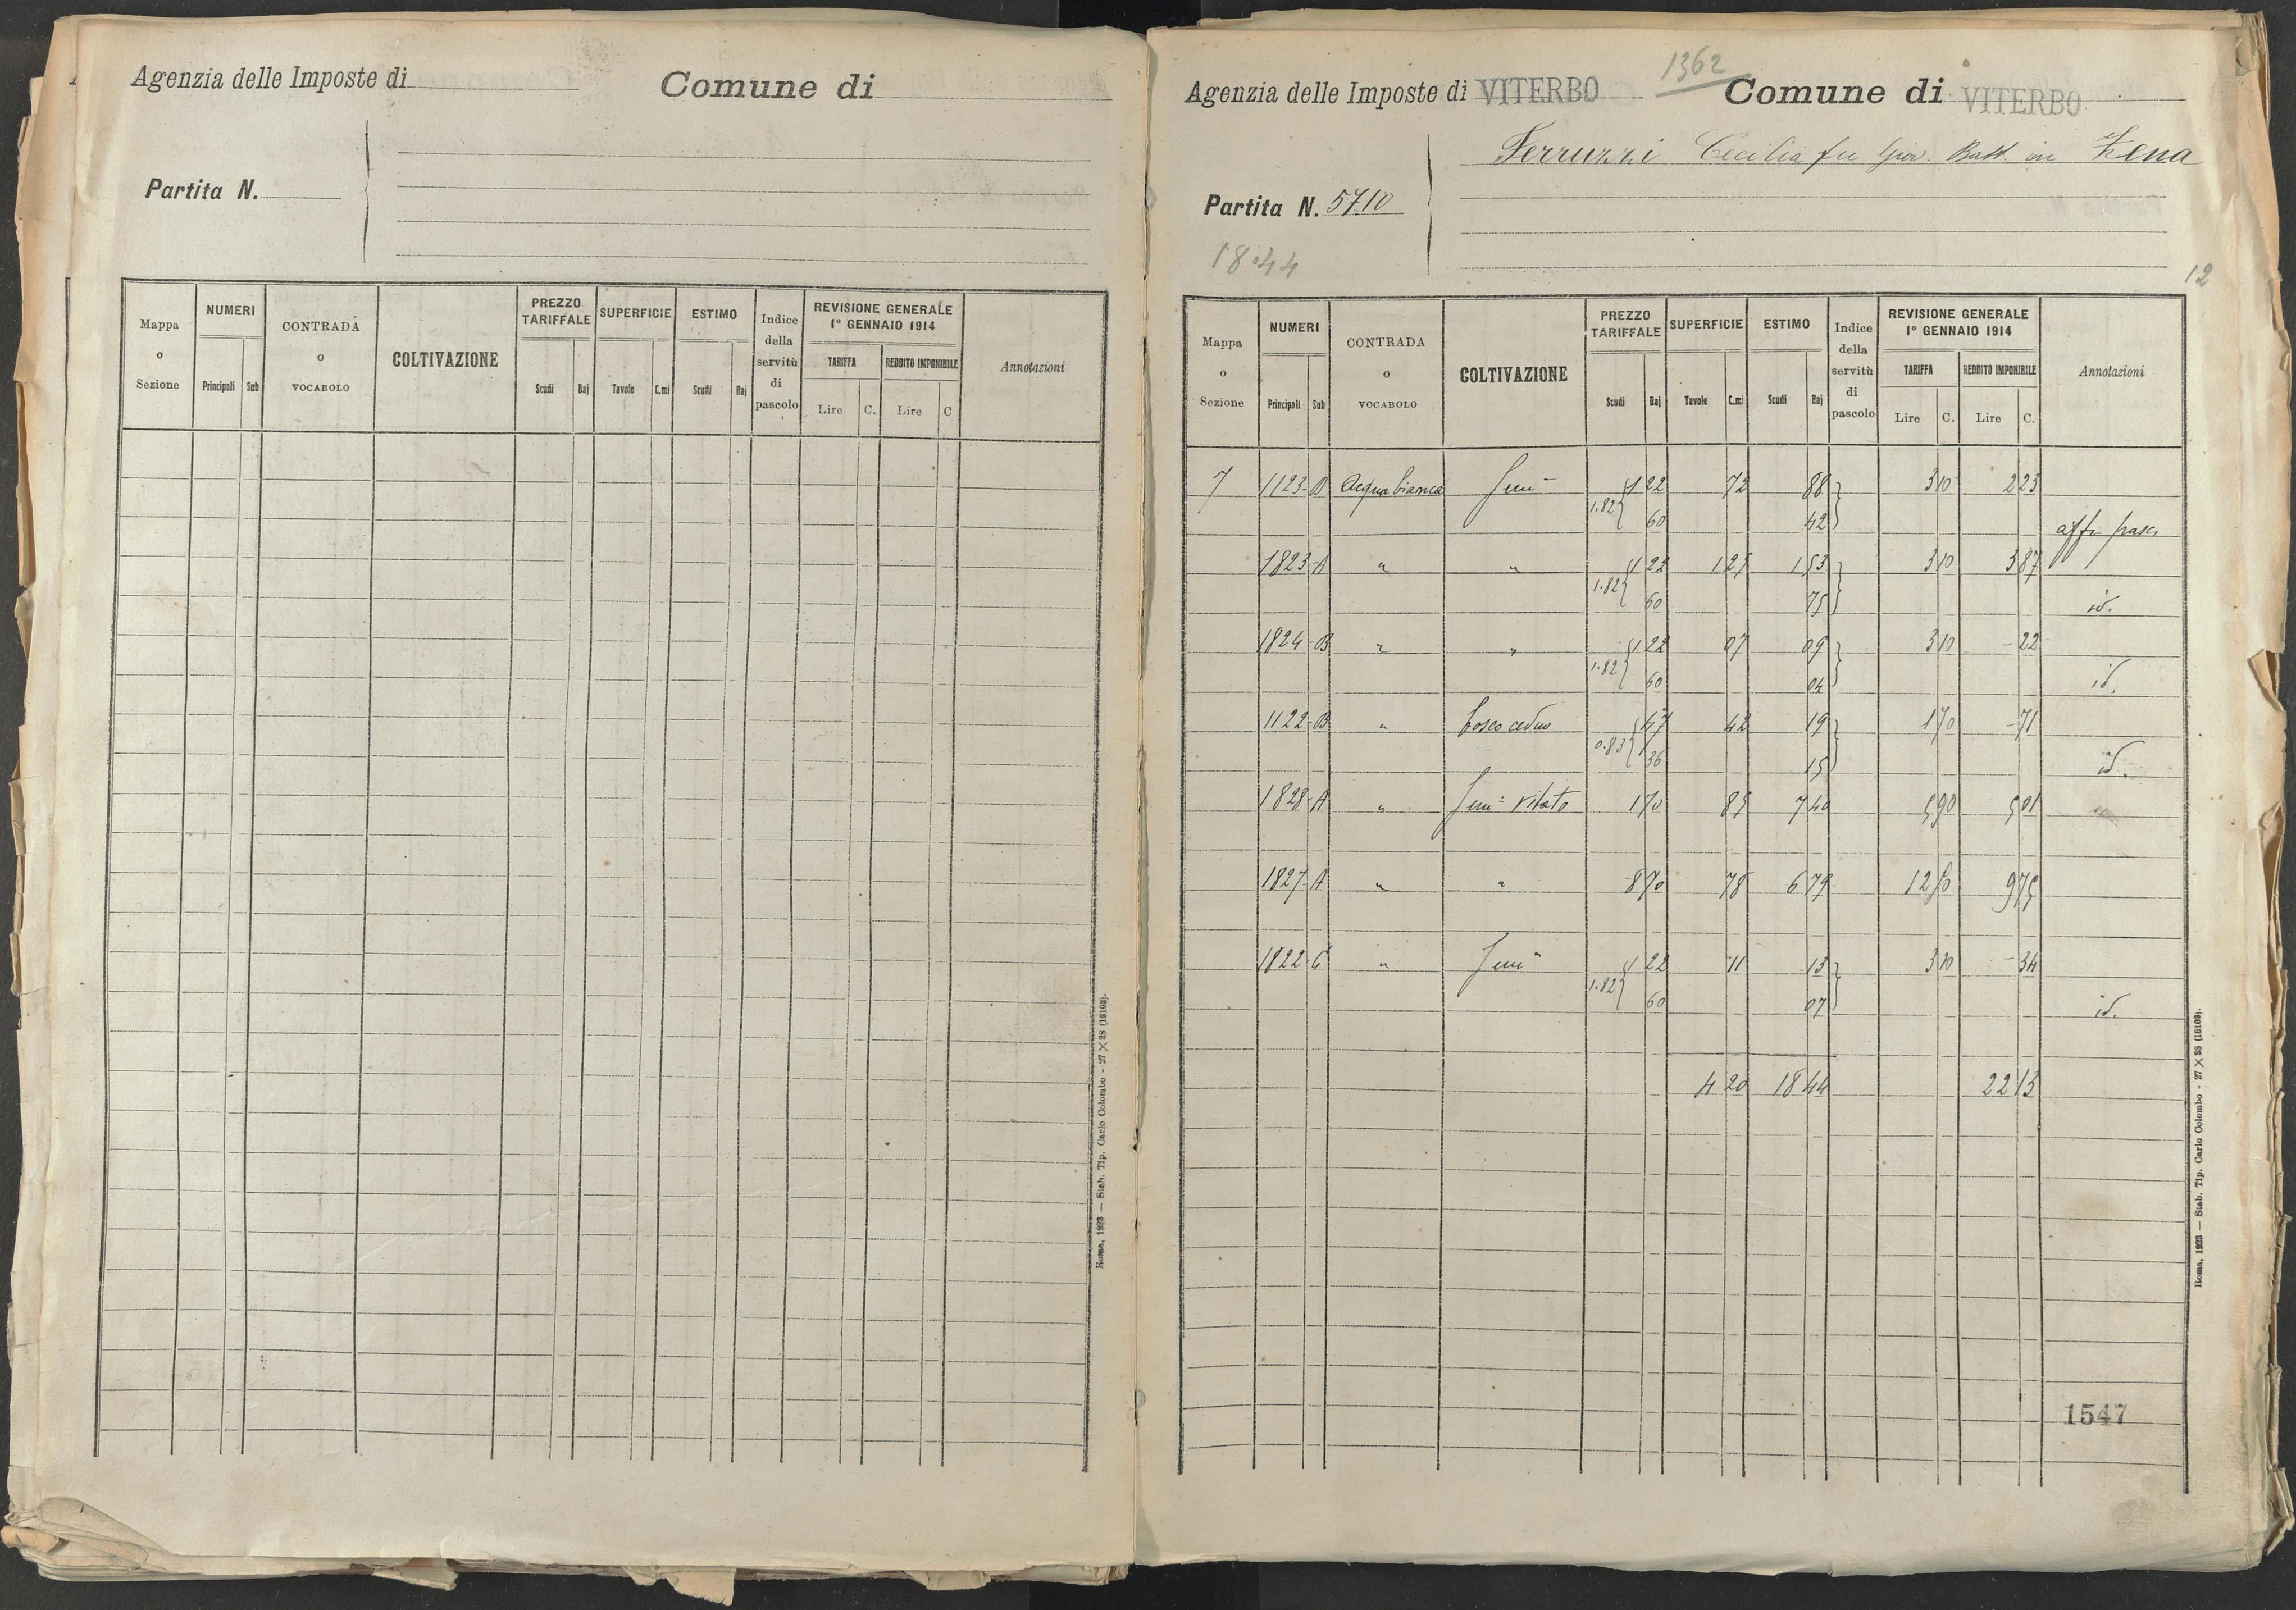 Agenzia delle Imposte di Comune di
Partita N.
Mappa o Sezione NUMERI Principali Sub CONTRADA o VOCABOLO COLTIVAZIONE PREZZO TARIFFALE Scudi Baj SUPERFICIE Tavole C.mi ESTIMO Scudi Baj Indice della servitù di pascolo REVISIONE GENERALE 1° GENNAIO 1914 TARIFFA Lire C. REDDITO IMPONIBILE Lire C Annotazioni
Roma, 1923 — Stab. Tip. Carlo Colombo - 27 X 38 (16103).
1362
Agenzia delle Imposte di VITERBO Comune di VITERBO
Ferruzzi Cecilia fu Giov. Batt. in Zena
Partita N. 5710
18.44
12
Mappa o Sezione NUMERI Principali Sub CONTRADA o VOCABOLO COLTIVAZIONE PREZZO TARIFFALE Scudi Baj SUPERFICIE Tavole C.mi ESTIMO Scudi Baj Indice della servitù di pascolo REVISIONE GENERALE 1° GENNAIO 1914 TARIFFA Lire C. REDDITO IMPONIBILE Lire C. Annotazioni
7 1123 B Acquabianca Sem 1 22 72 88 3 10 2 23
1.82 60 42 affr. pasc.
1823 A " " 1 22 1 25 1 53 3 10 3 87
1.82 60 75 id.
1824 B " " 1 22 07 09 3 10 - 22
1.82 60 04 id.
1122 B " bosco ceduo 47 42 19 1 70 - 71
0.83 36 15 id.
1828 A " Sem: vitato 1 70 85 7 40 5 90 5 01
1827 A " " 8 70 78 6 79 12 50 9 75
1822 C " Sem 1 22 11 13 3 10 - 34
1.82 60 07 id.
4 20 18 44 22 13
1547
Roma, 1923 — Stab. Tip. Carlo Colombo - 27 X 38 (16103).